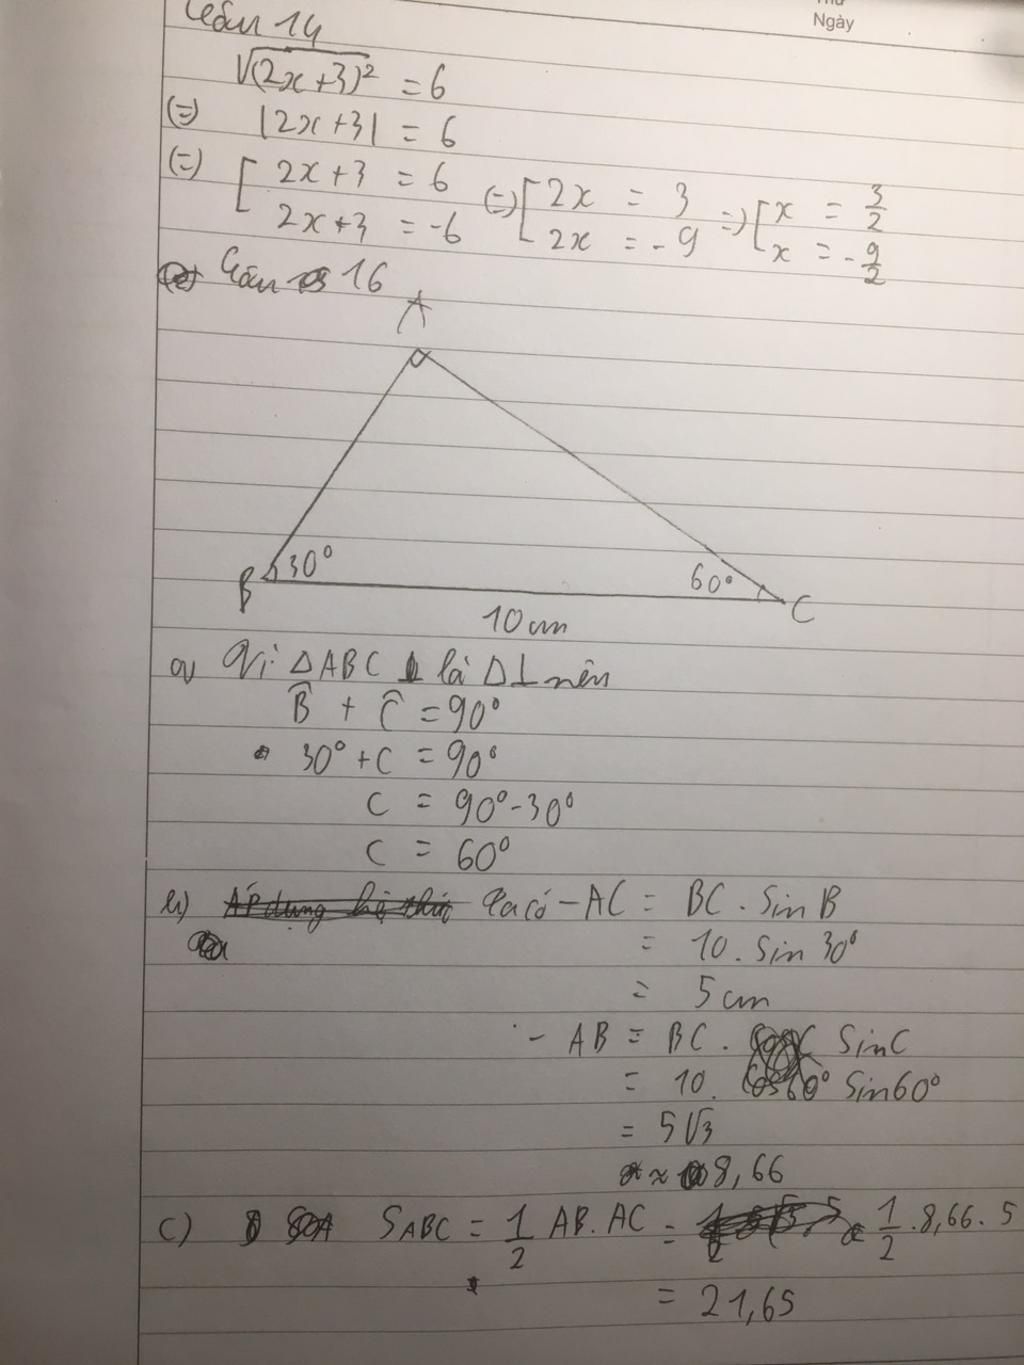 Thứ
Ngày
Câu 14
√(2x+3)² = 6
(=) |2x+3| = 6
(=) [ 2x+3 = 6 (=) [ 2x = 3 =) [ x = 3/2
2x+3 = -6 2x = -9 x = -9/2
Câu 16
A
B 30° 60° C
10 cm
a) Vì △ABC là △⊥ nên
B̂ + Ĉ = 90°
30° + C = 90°
C = 90° - 30°
C = 60°
b) Áp dụng hệ thức Ta có - AC = BC . Sin B
= 10 . Sin 30°
= 5 cm
- AB = BC . Sin C
= 10 . Cos 60° Sin 60°
= 5√3
≈ 8,66
c) SABC = 1/2 AB . AC = 1/2 . 8,66 . 5
= 21,65